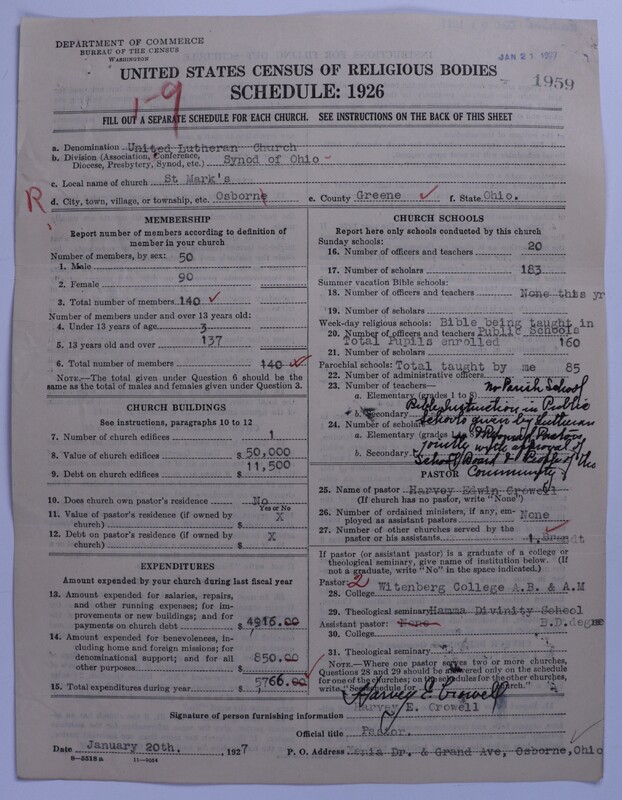 DEPARTMENT OF COMMERCE
BUREAU OF THE CENSUS
WASHINGTON
JAN 21 1927
1959
UNITED STATES CENSUS OF RELIGIOUS BODIES
SCHEDULE: 1926
1-9
FILL OUT A SEPARATE SCHEDULE FOR EACH CHURCH. SEE INSTRUCTIONS ON THE BACK OF THIS SHEET
a. Denomination United Lutheran Church
b. Division (Association, Conference, Diocese, Presbytery, Synod, etc.) Synod of Ohio
c. Local name of church St Mark's
R
d. City, town, village, or township, etc. Osborne e. County Greene f. State Ohio.
MEMBERSHIP
Report number of members according to definition of
member in your church
Number of members, by sex:
1. Male 50
2. Female 90
3. Total number of members 140
Number of members under and over 13 years old:
4. Under 13 years of age 3
5. 13 years old and over 137
6. Total number of members 140
NOTE.—The total given under Question 6 should be the
same as the total of males and females given under Question 3.
CHURCH BUILDINGS
See instructions, paragraphs 10 to 12
7. Number of church edifices 1
8. Value of church edifices $ 50,000
9. Debt on church edifices $ 11,500
10. Does church own pastor's residence No
Yes or No
11. Value of pastor's residence (if owned by
church) $ X
12. Debt on pastor's residence (if owned by
church) $ X
EXPENDITURES
Amount expended by your church during last fiscal year
13. Amount expended for salaries, repairs,
and other running expenses; for im-
provements or new buildings; and for
payments on church debt $ 4916.00
14. Amount expended for benevolences, in-
cluding home and foreign missions; for
denominational support; and for all
other purposes $ 850.00
15. Total expenditures during year $ 5766.00
CHURCH SCHOOLS
Report here only schools conducted by this church
Sunday schools:
16. Number of officers and teachers 20
17. Number of scholars 183
Summer vacation Bible schools:
18. Number of officers and teachers None this yr
19. Number of scholars
Week-day religious schools: Bible being taught in
20. Number of officers and teachers Public Schools
Total Pupils enrolled 160
21. Number of scholars
Parochial schools: Total taught by me 85
22. Number of administrative officers
23. Number of teachers—
a. Elementary (grades 1 to 8)
b. Secondary
24. Number of scholars
a. Elementary (grades 1 to 8)
b. Secondary
No Parish School
Bible Instruction in Public
Schools given by Lutheran
& Reformed Pastors
jointly with approval of
School Board & People of the
Community
PASTOR
25. Name of pastor Harvey Edwin Crowell
(If church has no pastor, write "None")
26. Number of ordained ministers, if any, em-
ployed as assistant pastors None
27. Number of other churches served by the
pastor or his assistants 1. Brandt
If pastor (or assistant pastor) is a graduate of a college or
theological seminary, give name of institution below. (If
not a graduate, write "No" in the space indicated.)
Pastor: 2
28. College Witenberg College A.B. & A.M
29. Theological seminary Hamma Divinity School
Assistant pastor: None B.D.degree
30. College
31. Theological seminary
NOTE.—Where one pastor serves two or more churches,
Questions 28 and 29 should be answered only on the schedule
for one of the churches; on the schedules for the other churches,
write "See schedule for church."
Harvey E. Crowell
Signature of person furnishing information Harvey E. Crowell
Official title Pastor.
Date January 20th. , 1927 P. O. Address Xenia Dr. & Grand Ave, Osborne, Ohio
8-5518a 11-9054